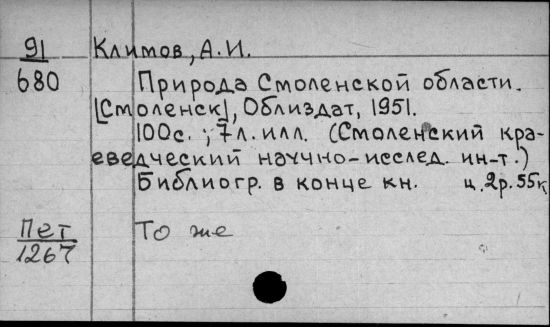 91 Климов, А.И.
680 Природа Смоленской области.
[Смоленск], Облиздат, 1951.
100с.; 7л. илл. (Смоленский кра-
еведческий научно-исслед. ин-т.)
Библиогр. в конце кн. ц. 2р. 55к
Пет То же
1267